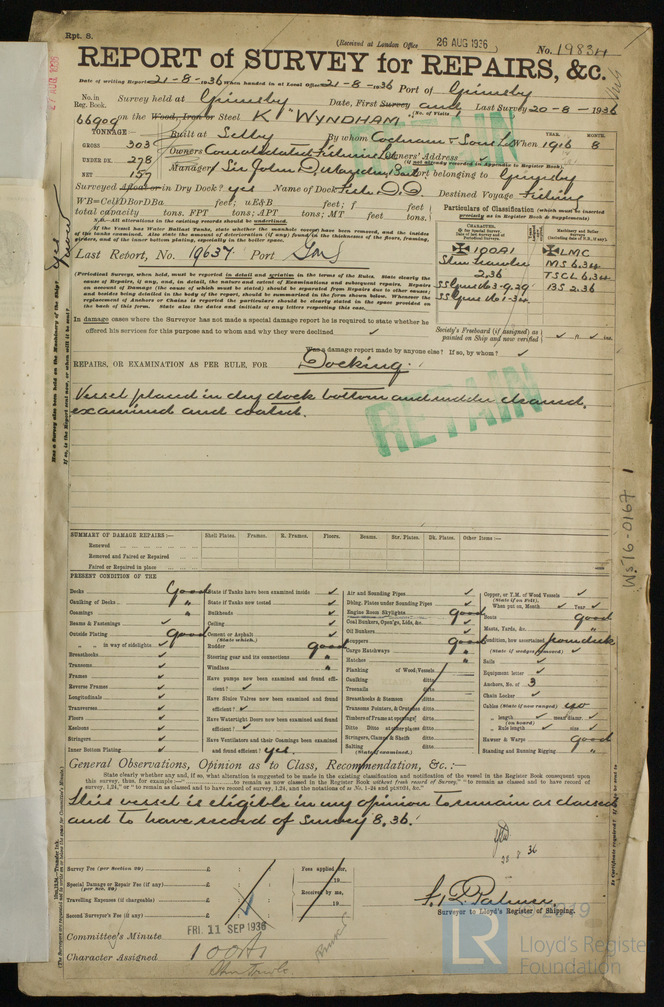 Rpt. 8.
(Received at London Office 26 AUG 1936
No. 19834
REPORT of SURVEY for REPAIRS, &c.
Date of writing Report 21-8-1936 When handed in at Local Office 21-8-1936 Port of Grimsby
No. in Reg. Book. Survey held at Grimsby Date, First Survey and Last Survey 20-8-1936
(No. of Visits
66909 on the Wood, Iron or Steel K "WYNDHAM"
TONNAGE:— Built at Selby By whom Cochrane & Sons Ld When 1916 8
YEAR. MONTH.
GROSS 303 Owners Consolidated Fisheries Ld Owners' Address
(if not already recorded in Appendix to Register Book)
UNDER DK. 278
NET 157 Managers Sir John D. Marsden, Bart Port belonging to Grimsby
Surveyed Afloat or in Dry Dock? yes Name of Dock Fish D.D. Destined Voyage Fishing
total capacity tons. FPT tons; APT tons; MT feet tons.
N.B.—All alterations in the existing records should be underlined.
If the Vessel has Water Ballast Tanks, state whether the manhole covers have been removed, and the insides
of the tanks examined. Also state the amount of deterioration (if any) found in the thicknesses of the floors, framing,
girders, and of the inner bottom plating, especially in the boiler space.
Last Report, No. 19637 Port Gms
Particulars of Classification (which must be inserted
precisely as in Register Book & Supplements)
100A1
Stm Trawler
2,36
SS Gms No3-9,29
SS Gms No1-3,34
LMC
MS 6.34
TSCL 6.34
BS 2.36
(Periodical Surveys, when held, must be reported in detail and seriatim in the terms of the Rules. State clearly the
cause of Repairs, if any, and, in detail, the nature and extent of Examinations and subsequent repairs. Repairs
on account of damage (the cause of which must be stated) should be separated from Repairs due to other causes;
and besides being detailed in the body of the report, should be summarized in the form shown below. Whenever the
replacement of Anchors or Chains is reported the particulars should be clearly stated in the space provided on
the back of this form. State also the dates and initials of any letters respecting this case.
In damage cases where the Surveyor has not made a special damage report he is required to state whether he
offered his services for this purpose and to whom and why they were declined
Society's Freeboard (if assigned) as
painted on Ship and now verified
Was a damage report made by anyone else? If so, by whom?
REPAIRS, OR EXAMINATION AS PER RULE, FOR Docking.
Vessel placed in dry dock bottom and rudder cleaned,
examined and coated.
RETAIN
SUMMARY OF DAMAGE REPAIRS:— Shell Plates. Frames. R. Frames. Floors. Beams. Str. Plates. Dk. Plates. Other Items:—
Renewed
Removed and Faired or Repaired
Faired or Repaired in place
PRESENT CONDITION OF THE
Decks Good
Caulking of Decks "
Coamings "
Beams & Fastenings
Outside Plating Good
" " in way of sidelights
Breasthooks
Transoms
Frames
Reverse Frames
Longitudinals
Transverses
Floors
Keelsons
Stringers
Inner Bottom Plating
State if Tanks have been examined inside
State if Tanks now tested
Bulkheads
Ceiling
Cement or Asphalt
(State which.)
Rudder good
Steering gear and its connections "
Windlass "
Have pumps now been examined and found efficient?
Have Sluice Valves now been examined and found
efficient?
Have Watertight Doors now been examined and found
efficient?
Have Ventilators and their Coamings been examined
and found efficient? yes.
Air and Sounding Pipes
Dblng. Plates under Sounding Pipes
Engine Room Skylights good
Coal Bunkers, Open'gs, Lids, &c.
Oil Bunkers
Scuppers good
Cargo Hatchways "
Hatches "
Planking of Wood Vessels
Caulking ditto
Treenails ditto
Breasthooks & Stemson ditto
Transoms Pointers, & Crutches ditto
Timbers of Frame at openings ditto
Ditto Ditto at other places ditto
Stringers, Clamps & Shelfs ditto
Salting ditto
(State if examined.)
Copper, or Y.M. of Wood Vessels
When put on, Month Year
Boats good
Masts, Yards, &c. "
Condition, how ascertained from deck
Sails
Equipment letter
Anchors, No. of 3
Chain Locker
Cables (State if now ranged) no
" length mean diamr.
" Rule length size
Hawser & Warps Good
Standing and Running Rigging "
General Observations, Opinion as to Class, Recommendation, &c.:—
State clearly whether any and, if so, what alteration is suggested to be made in the existing classification and notification of the vessel in the Register Book consequent upon
this survey, thus, for example—"to remain as now classed in the Register Book without fresh record of Survey," "to remain as classed and to have record of
This vessel is eligible in my opinion to remain as classed
and to have record of Survey 8,36.
28 8 36
Survey Fee (per Section 29) £ Fees applied for,
Special Damage or Repair Fee (if any) £ 19
(per Sec. 29)
Travelling Expenses (if chargeable) £ Received by me,
Second Surveyor's Fee (if any) £ 19
Surveyor to Lloyd's Register of Shipping.
Committee's Minute FRI. 11 SEP 1936
Character Assigned 100A1
Stm Trawler
WS16-0167 1
© 2019
LR Lloyd's Register
Foundation